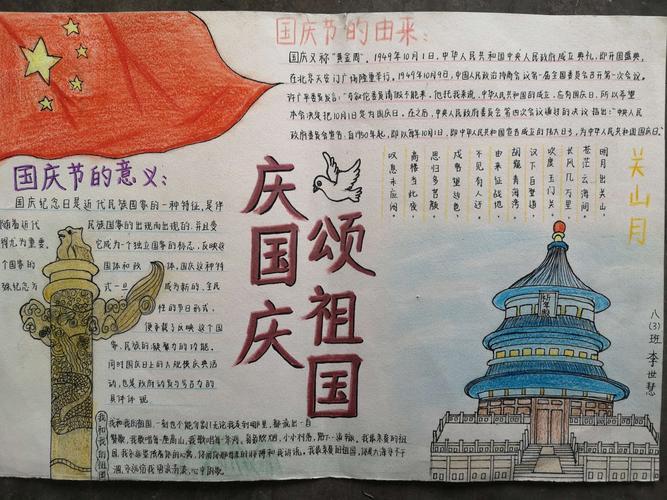 国庆节的由来:
国庆又称"黄金周"。1949年10月1日,中华人民共和国中央人民政府成立典礼,即开国盛典,
在北京天安门广场隆重举行。1949年10月9日,中国人民政治协商会议第一届全国委员会召开第一次会议。
许广平委员发言:"马叙伦委员请假不能来,他托我来说,中华人民共和国的成立,应有国庆日,所以希望
本会决定把10月1日定为国庆日。在之后,中央人民政府委员会第四次会议通过的决议指出:"中央人民
政府委员会宣告:自1950年起,即以每年10月1日,即中华人民共和国宣告成立的伟大日子,为中华人民共和国国庆日。"
关山月
明月出天山,
苍茫云海间。
长风几万里,
吹度玉门关。
汉下白登道,
胡窥青海湾。
由来征战地,
不见有人还。
戍客望边色,
思归多苦颜。
高楼当此夜,
叹息未应闲。
国庆节的意义:
国庆纪念日是近代民族国家的一种特征,是伴
随着近代民族国家的出现而出现的,并且变
得尤为重要。它成为一个独立国家的标志,反映这
个国家的国体和政体。国庆这种特
殊纪念方式一旦成为新的、全民
性的节日形式,
便承载了反映这个国
家、民族的凝聚力的功能。
同时国庆日上的大规模庆典活
动,也是政府动员与号召力的
具体体现
庆国庆
颂祖国
我和我的祖国
我和我的祖国,一刻也不能分割!无论我走到哪里,都流出一首
赞歌。我歌唱每一座高山,我歌唱每一条河。袅袅炊烟,小小村落,路上一道辙。我最亲爱的祖
八(3)班 李世慧